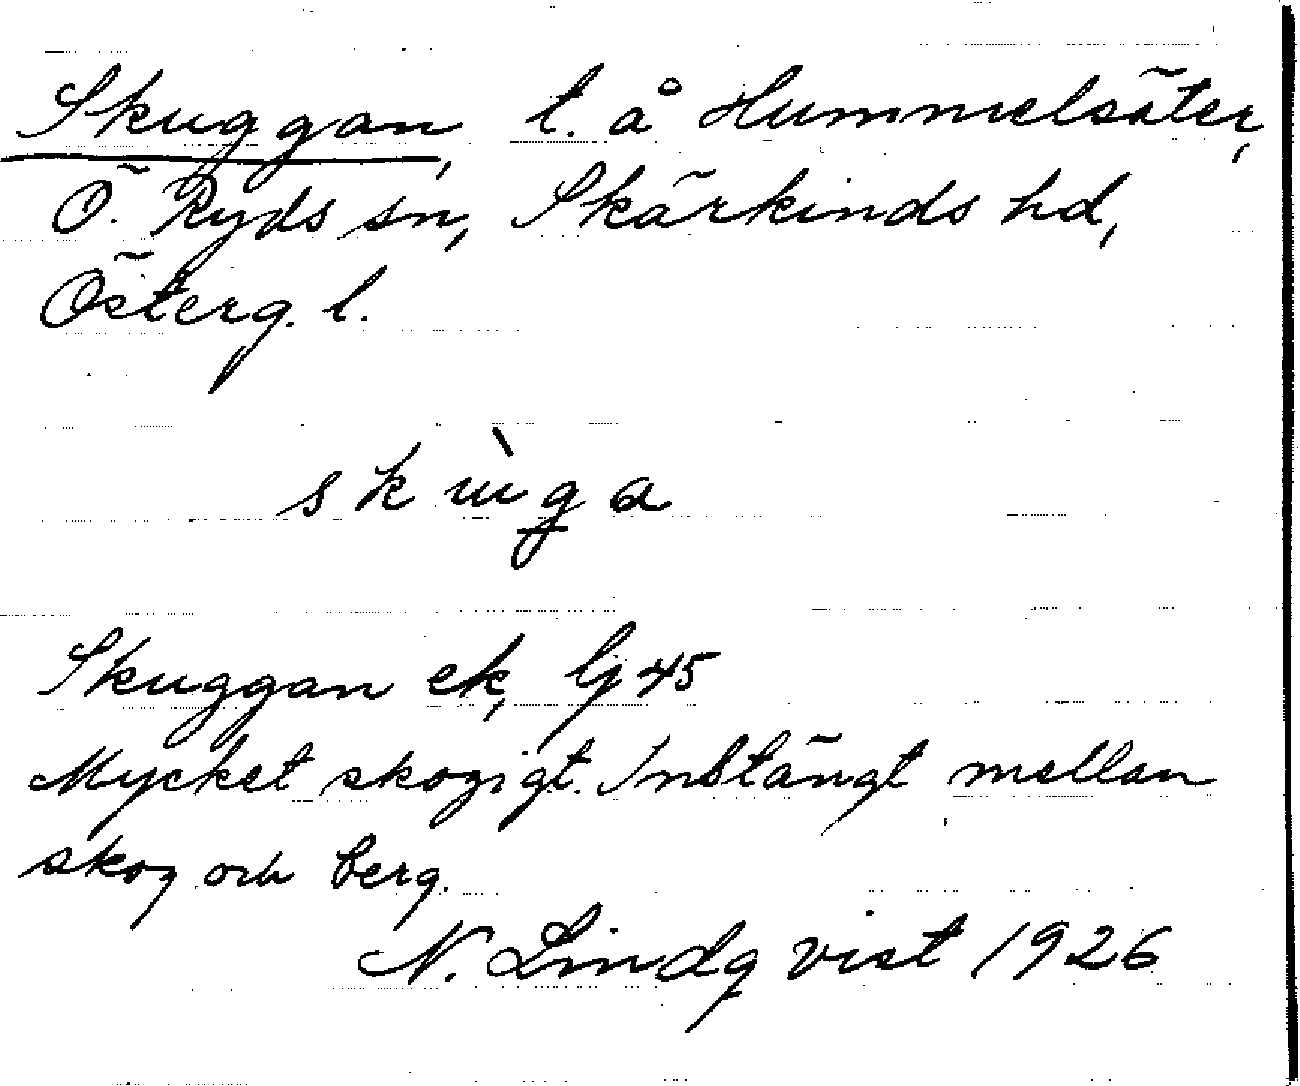 Skuggan, t. å Hummelsäter,
Ö. Ryds sn, Skärkinds hd,
Österg. l.
skùga
Skuggan ek, bl 45
Mycket skogigt. Instängt mellan
skog och berg.
N. Lindqvist 1926